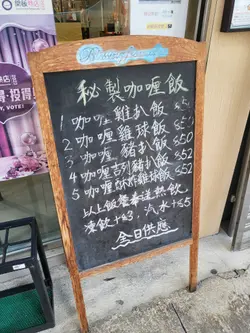 秘製咖喱飯
1 咖喱雞扒飯 $50
2 咖喱雞球飯 $50
3 咖喱豬扒飯 $50
4 咖喱吉列豬扒飯 $52
5 咖喱酥炸雞球飯 $52
以上飯餐奉送熱飲
凍飲+$3，汽水+$5
全日供應